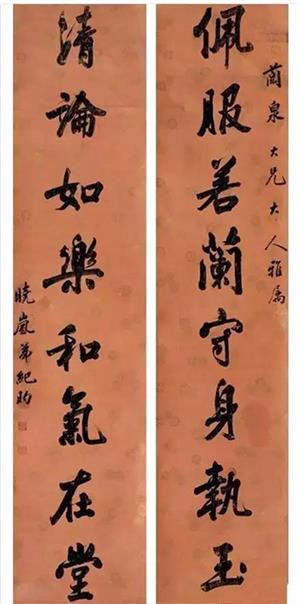 蘭泉大兄大人雅屬
佩服若蘭守身執玉
清論如樂和氣在堂
曉嵐弟紀昀